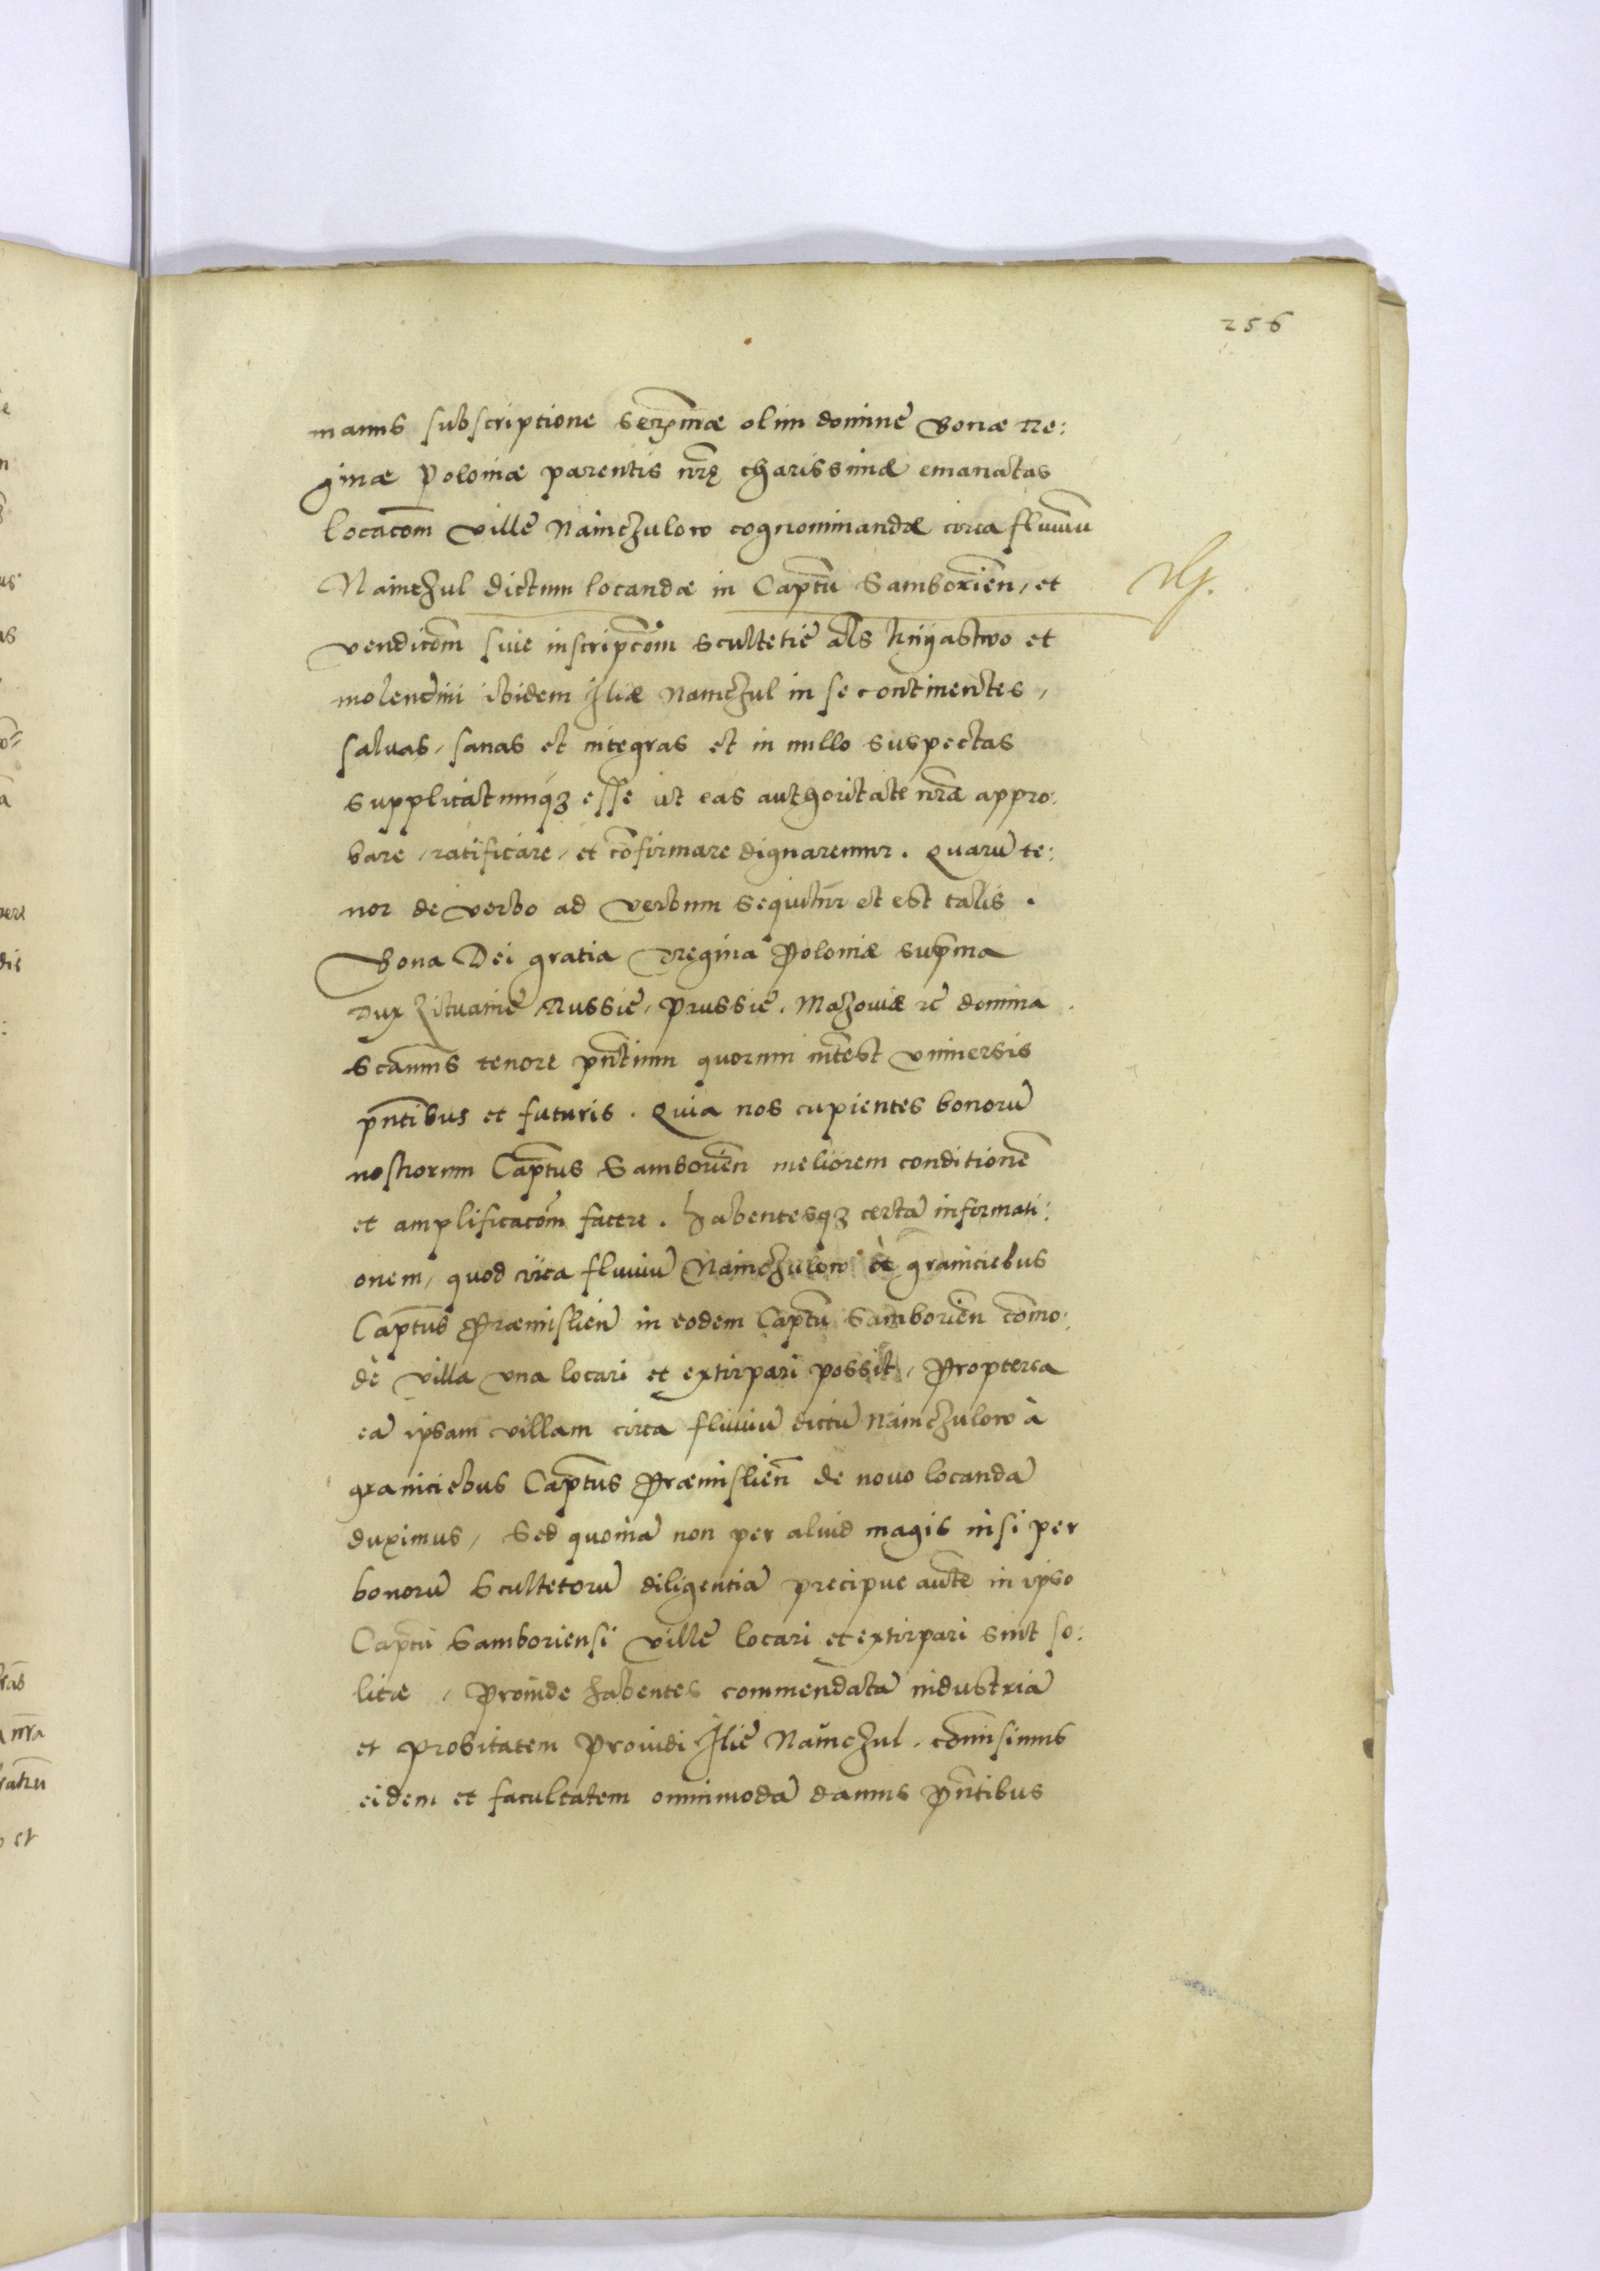 256
manus subscriptione seren̄mæ olim dominę Bonæ Re:
ginæ Poloniæ parentis nr̄ę charissimæ emanatas
locacōm villę Naniczulow cognominandæ circa fluuiū
Naniczul dictum locandæ in Captū Samborień, et
vendicōm siue inscripcōm scultetię als kniyastwo et
molendini ibidem Iliæ Nanczul in se continentes,
saluas, sanas et integras et in nullo suspectas
supplicatumq3 esse ut eas authoritate nr̄a appro:
bare, ratificare, et cōfirmare dignaremur. Quarū te:
nor de verbo ad verbum sequitur et est talis.
Bona Dei gratia Regina Poloniæ supma
Dux Lituanię, Russię, Prussię, Mazouiæ rc̄ domina
Scaums tenore pn̄tium quorum intest vniuersis
pn̄tibus et futuris. Quia nos cupientes bonorū
nostrorum Captus Samborień meliorem conditionē
et amplificacōm facere. habentesq3 certā informati:
onem, quod circa fluuiū Nainczulow à graniciebus
Captus Præmislień in eodem Captū Samborień cōmo:
dè villa vna locari et extirpari possit, Propterea
eā ipsam villam circa fluuiū dictū Nainczulow à
graniciebus Captus Præmislień de nouo locandā
duximus, Sed quoniā non per aluid magis nisi per
bonorū Scultetorū diligentiā precipue autē in ipso
Captū Samboriensi villę locari et extirpari sint so:
litæ, Proinde habentes commendatā industriā
et probitatem Prouidi Ilię Nainczul. cōmisimus
eidem et facultatem omnimodā damus pn̄tibus